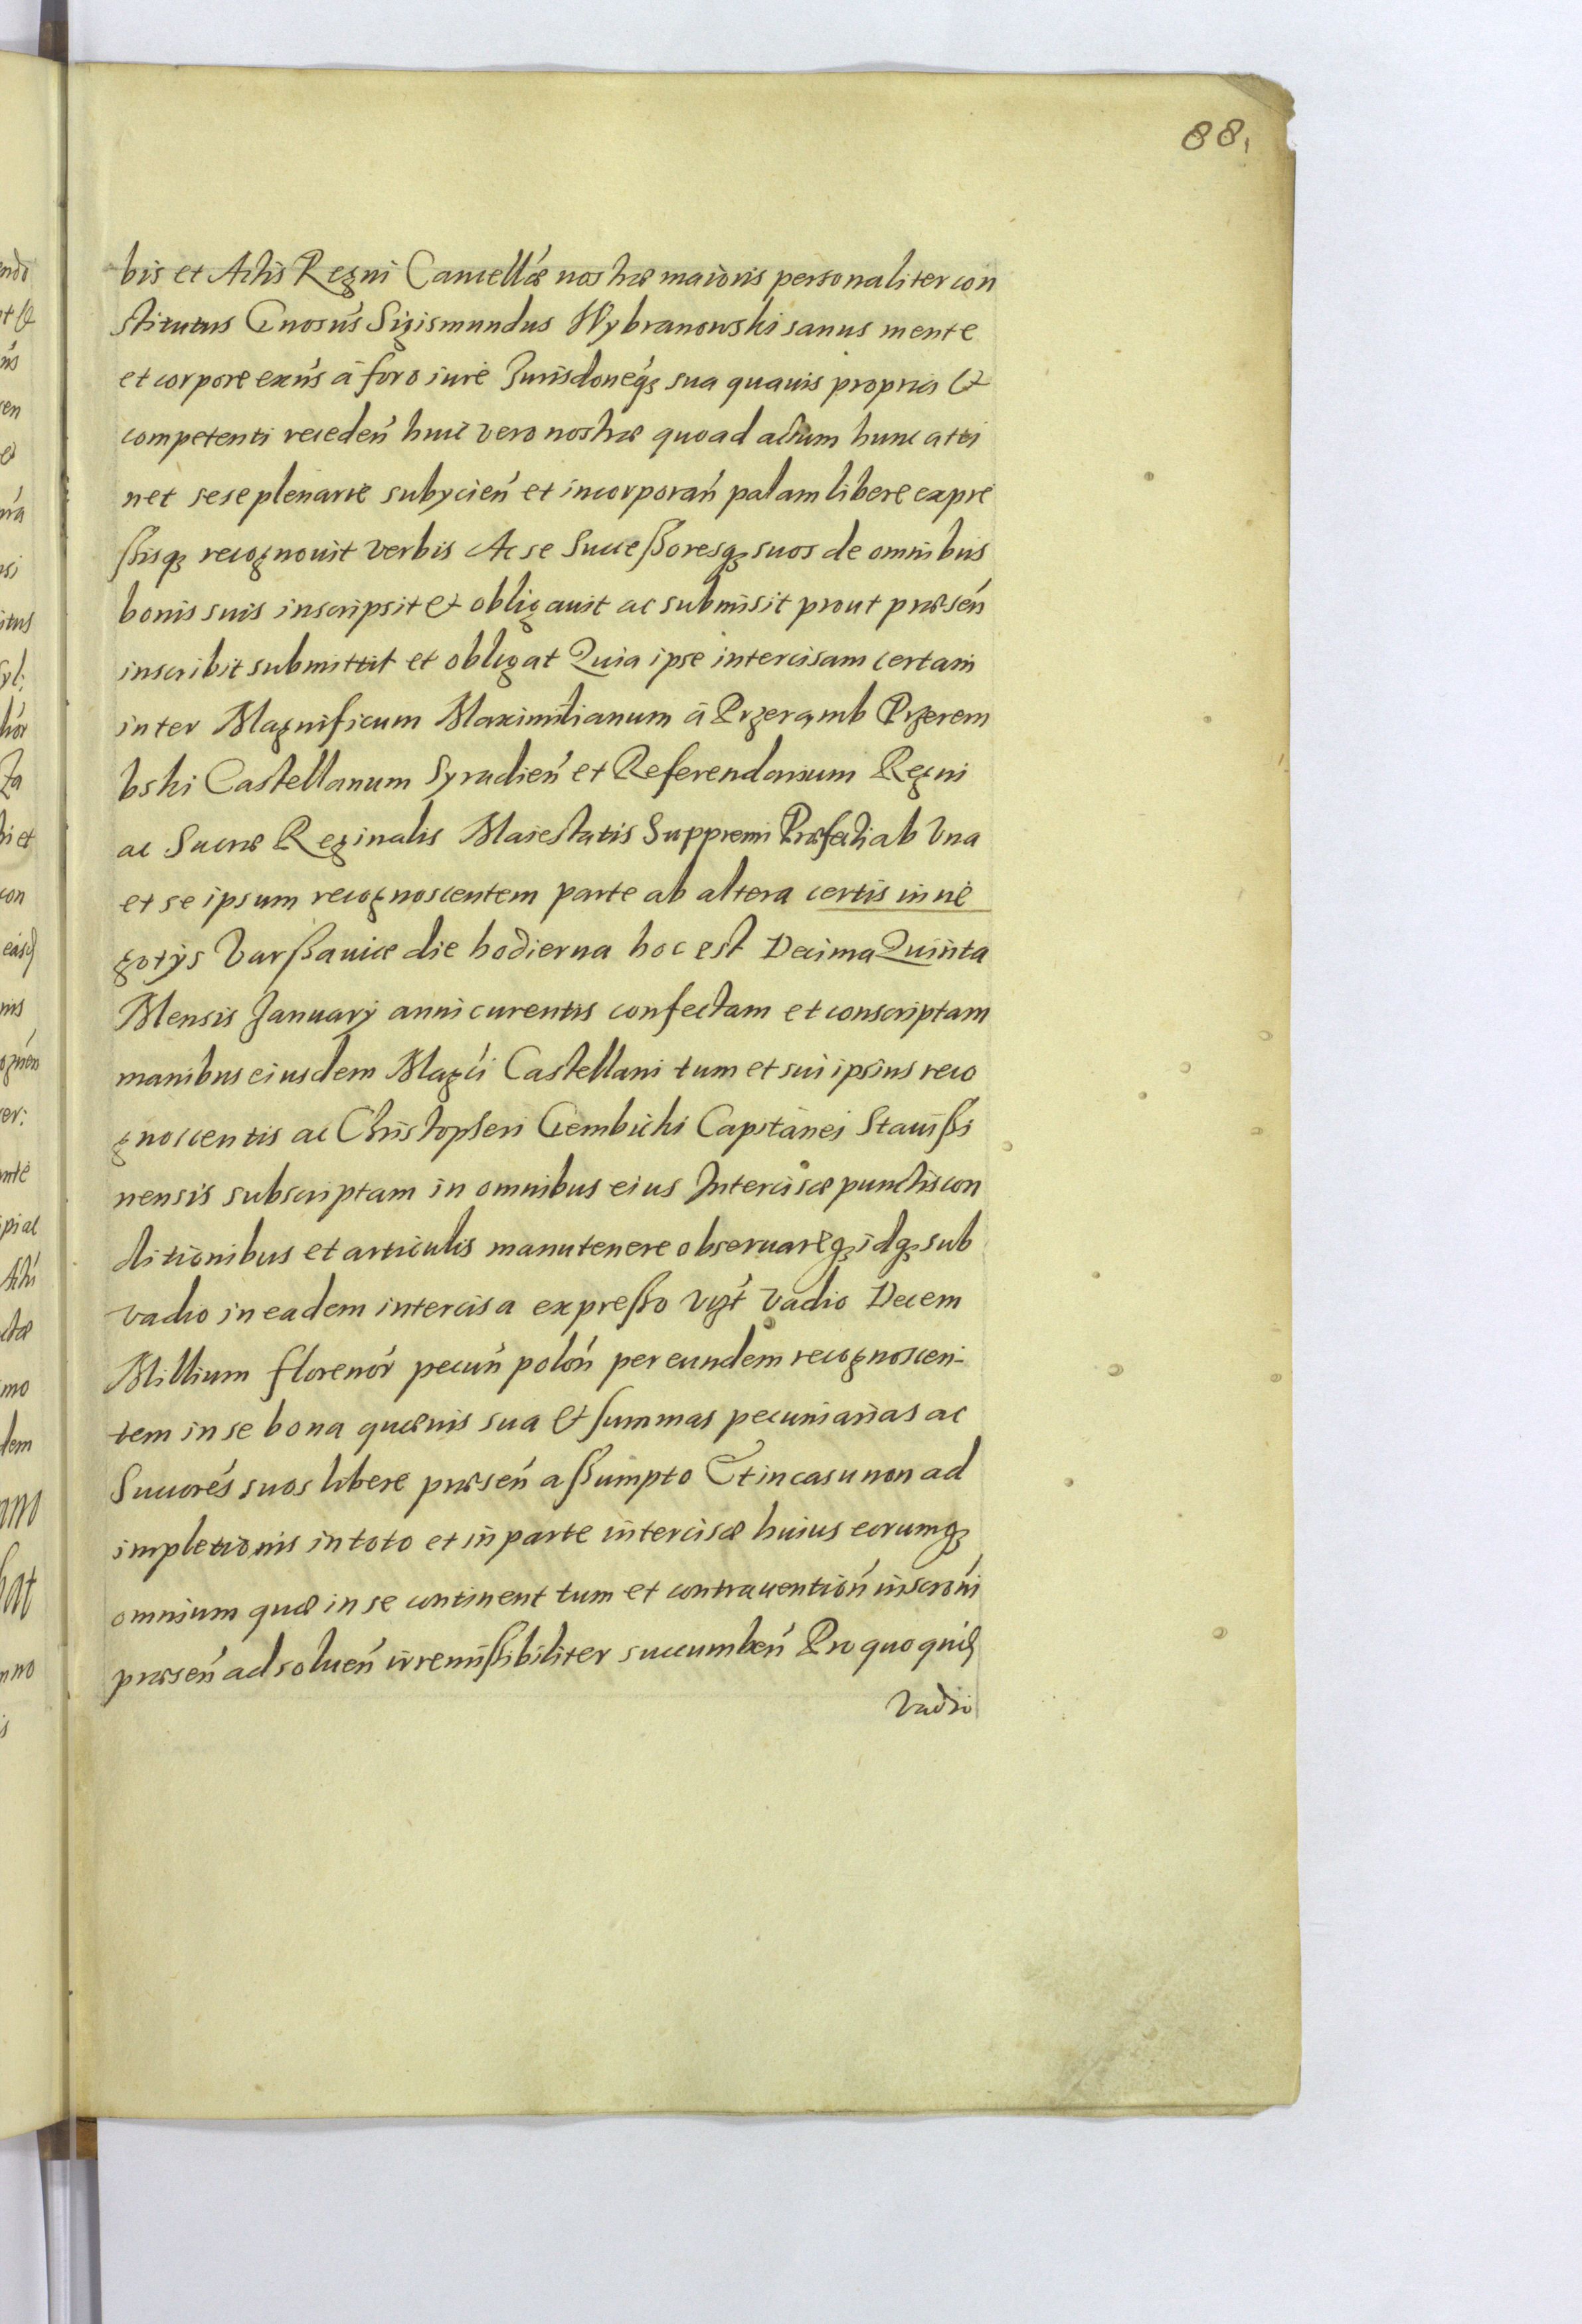 88.
bis et Actis Regni Cancellæ nostræ maioris personaliter con
stitutus Gnosus Sigismundus Wybranowski sanus mente
et corpore exns à foro iure Jurisdoneq; sua quauis propria et
competenti receden huic vero nostræ quoad actum hunc atti
net sese plenarie subycien et incorporan palam libere expre
ssisq; recognouit verbis Ac se Successoresq; suos de omnibus
bonis suis inscripsit et obligauit ac submisit prout præsen
inscribit submittit et obligat Quia ipse intercisam certam
inter Magnificum Maximilianum à Przeramb Przerem
bski Castellanum Syradien et Referendarium Regni
ac Sacræ Reginalis Maiestatis Suppremi Præfecti ab Vna
et se ipsum recognoscentem parte ab altera certis in ne
gotys Varssauiæ die hodierna hoc est Decima Quinta
Mensis January anni curentis confectam et conscriptam
manibus eiusdem Magci Castellani tum et sui ipsius reco
gnoscentis ac Christopheri Gembicki Capitanei Stauissi
nensis subscriptam in omnibus eius Intercisæ punctis con
ditionibus et articulis manutenere obseruareq; idq; sub
vadio in eadem intercisa expresso vigt vadio Decem
Millium florenor pecun polon per eundem recognoscen-
tem in se bona quæuis sua et summas pecuniarias ac
Succores suos libere præsen assumpto Et in casu non ad
impletionis in toto et in parte intercisæ huius eorumq;
omnium quæ in se continent tum et contrauention inscroni
præsen adsoluen irremissibiliter succumben Pro quo quid
vadio